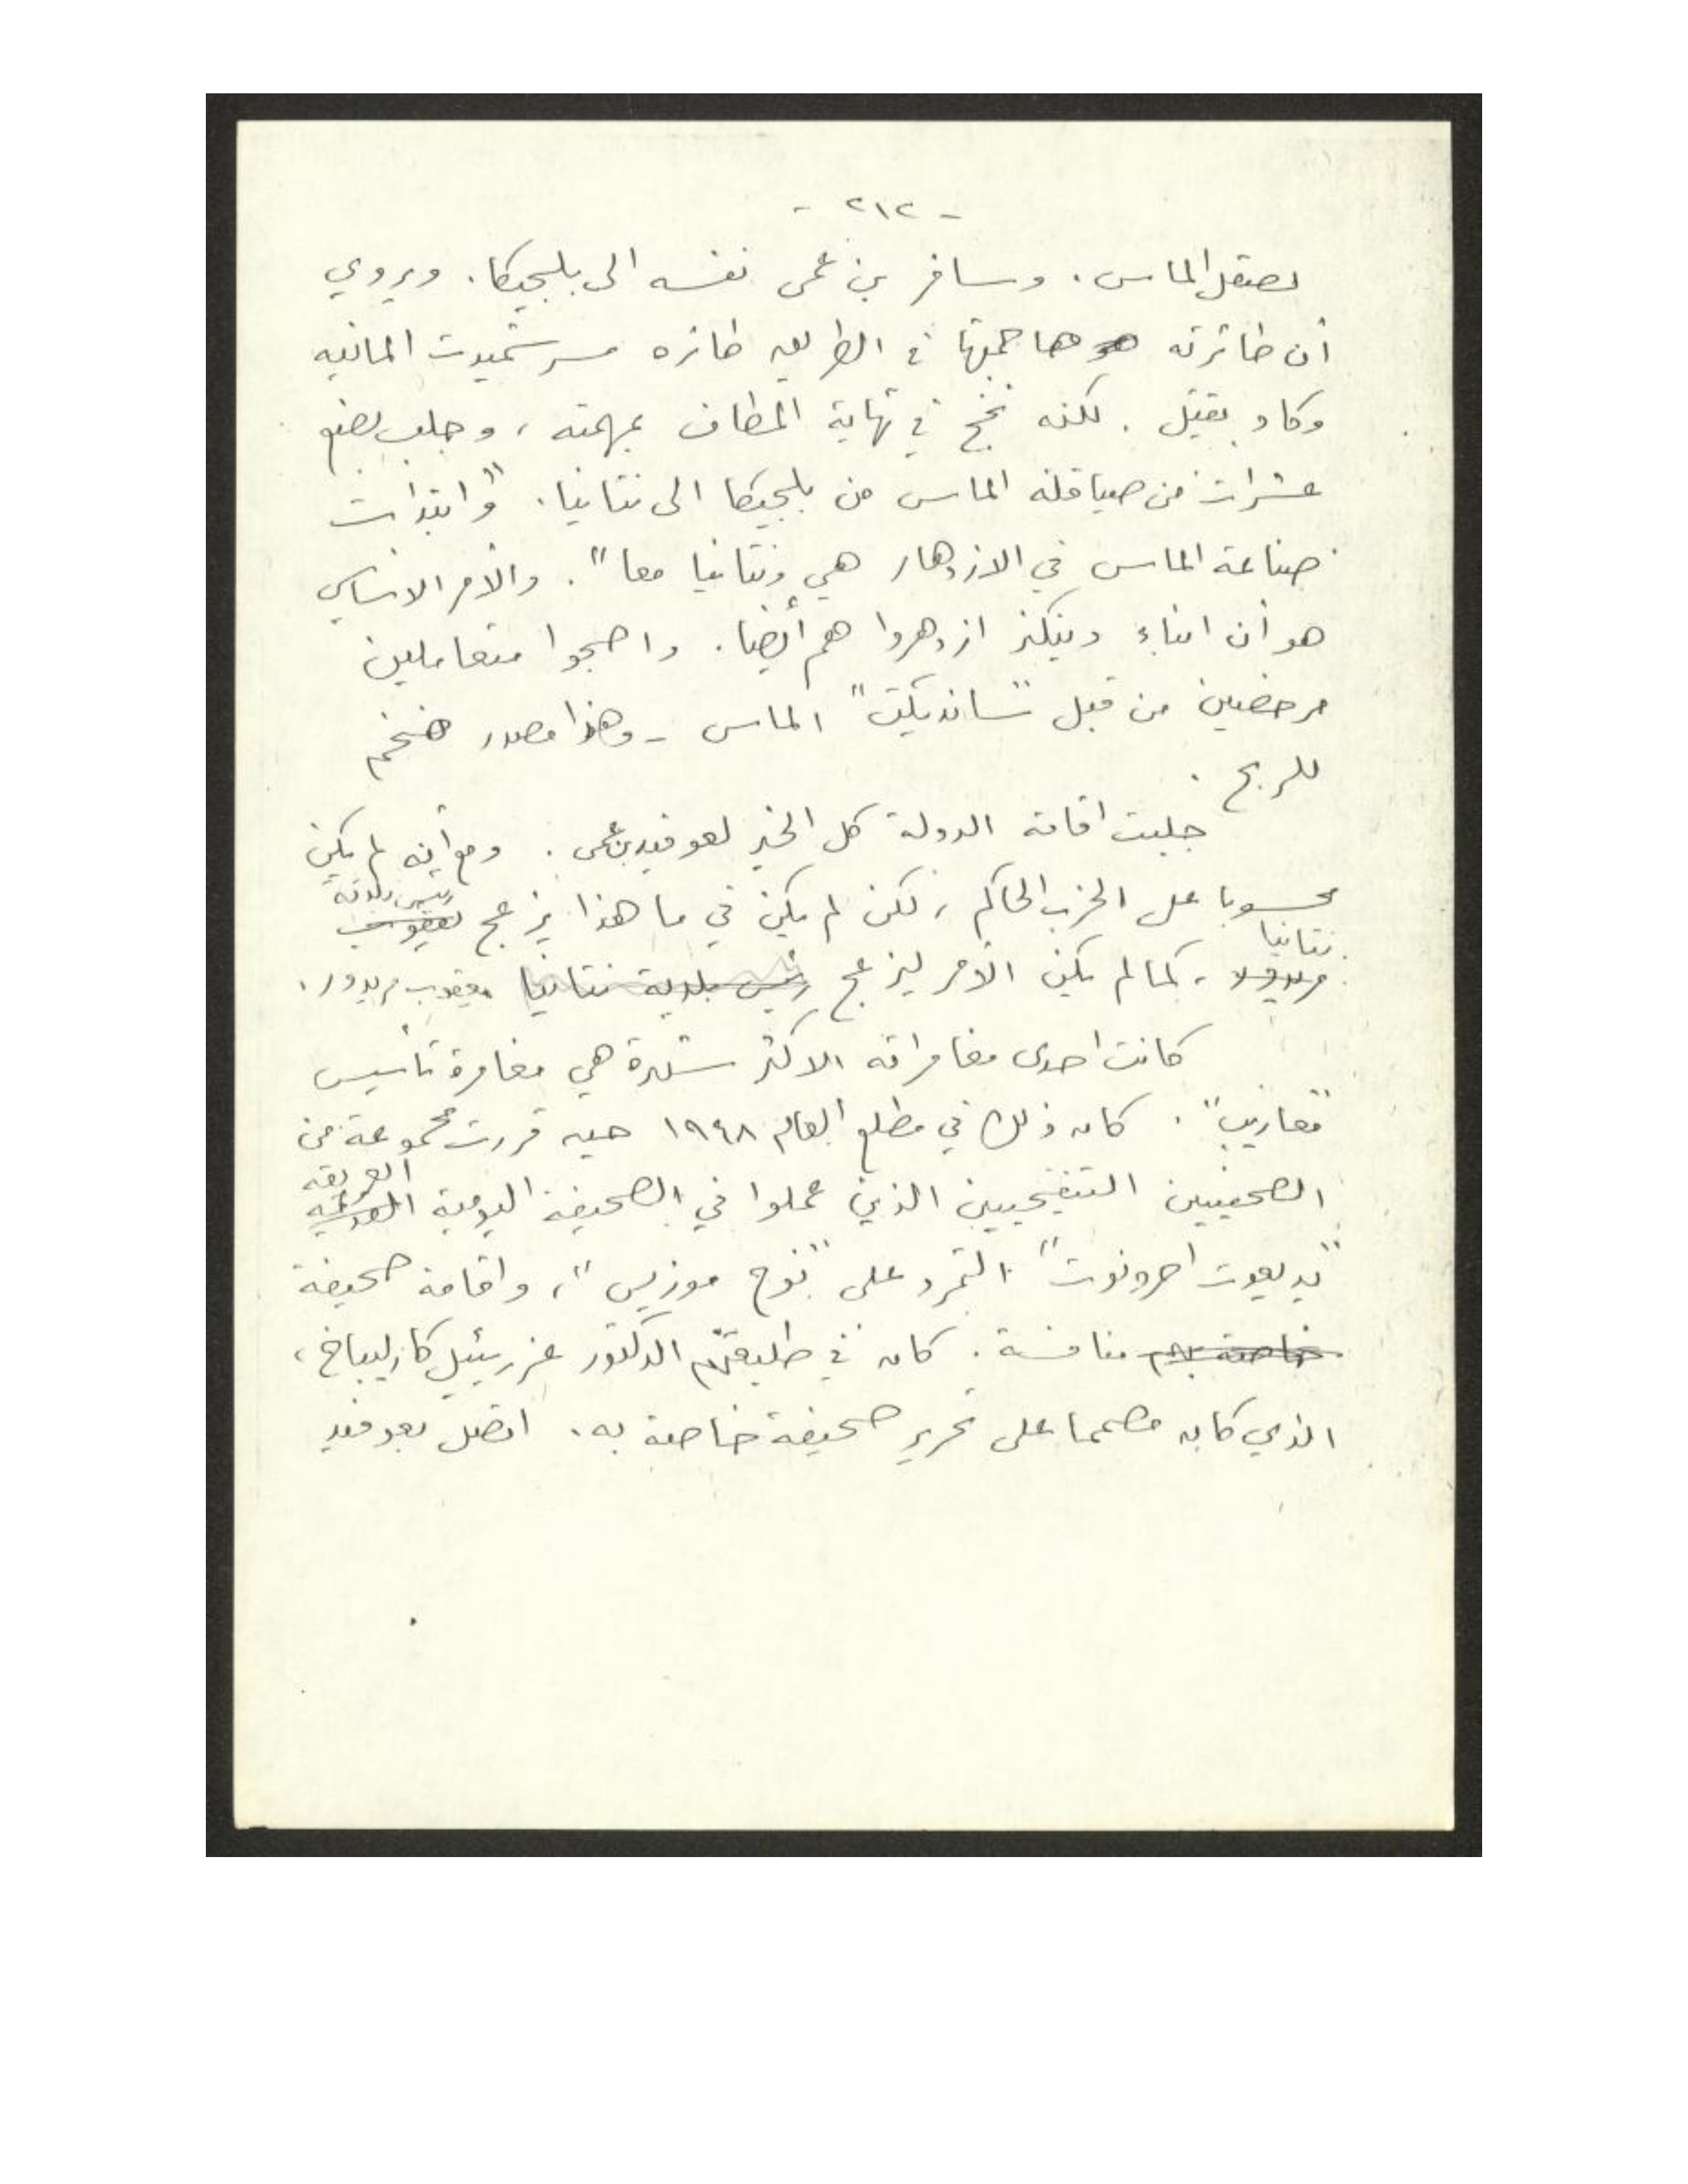 - ٢١٢ -
لصقل الماس. وسافر بن عمى نفسه الى بلجيكا. ويروي
أن طائرته هو هاجمتها في الطريق طائره مسرشميدت المانيه
وكاد يقتل. لكنه نجح في نهاية المطاف بمهمته، وجلب بضع
عشرات من صياقله الماس من بلجيكا الى نتانيا. "وابتدات
صناعة الماس في الازدهار هي ونتانيا معا". والأمر الاساسي
هو أن ابناء دينكلز ازدهروا هم أيضا. واصبحوا متعاملين
مرخصين من قبل "سانديكت" الماس - وهذا مصدر ضخم
للربح.
جلبت اقامة الدولة كل الخير لعوفيد بن عمى. ومع أنه لم يكن
محسوبا على الحزب الحاكم، لكن لم يكن في ما هذا يزعج يعقوب رئيس بلدية
نتانيا
مريدور، كما لم يكن الأمر ليزعج رئيس بلدية نتانيا يعقوب مريدور.
كانت احدى مغامراته الاكثر شهرة هي مغامرة تأسيس
"معاريب". كان ذلك في مطلع العام ١٩٤٨ حين قررت مجموعة من
الصحفيين التنقيحيين الذين عملوا في الصحيفة اليومية العريقه
"يديعوت احرونوت" التمرد على "نوح موزيس"، واقامة صحيفة
خاصة بهم منافسة. كان في طليعتهم الدكتور عزريئيل كارليباخ،
الذي كان مصمما على تحرير صحيفة خاصة به. اتصل بعوفيد